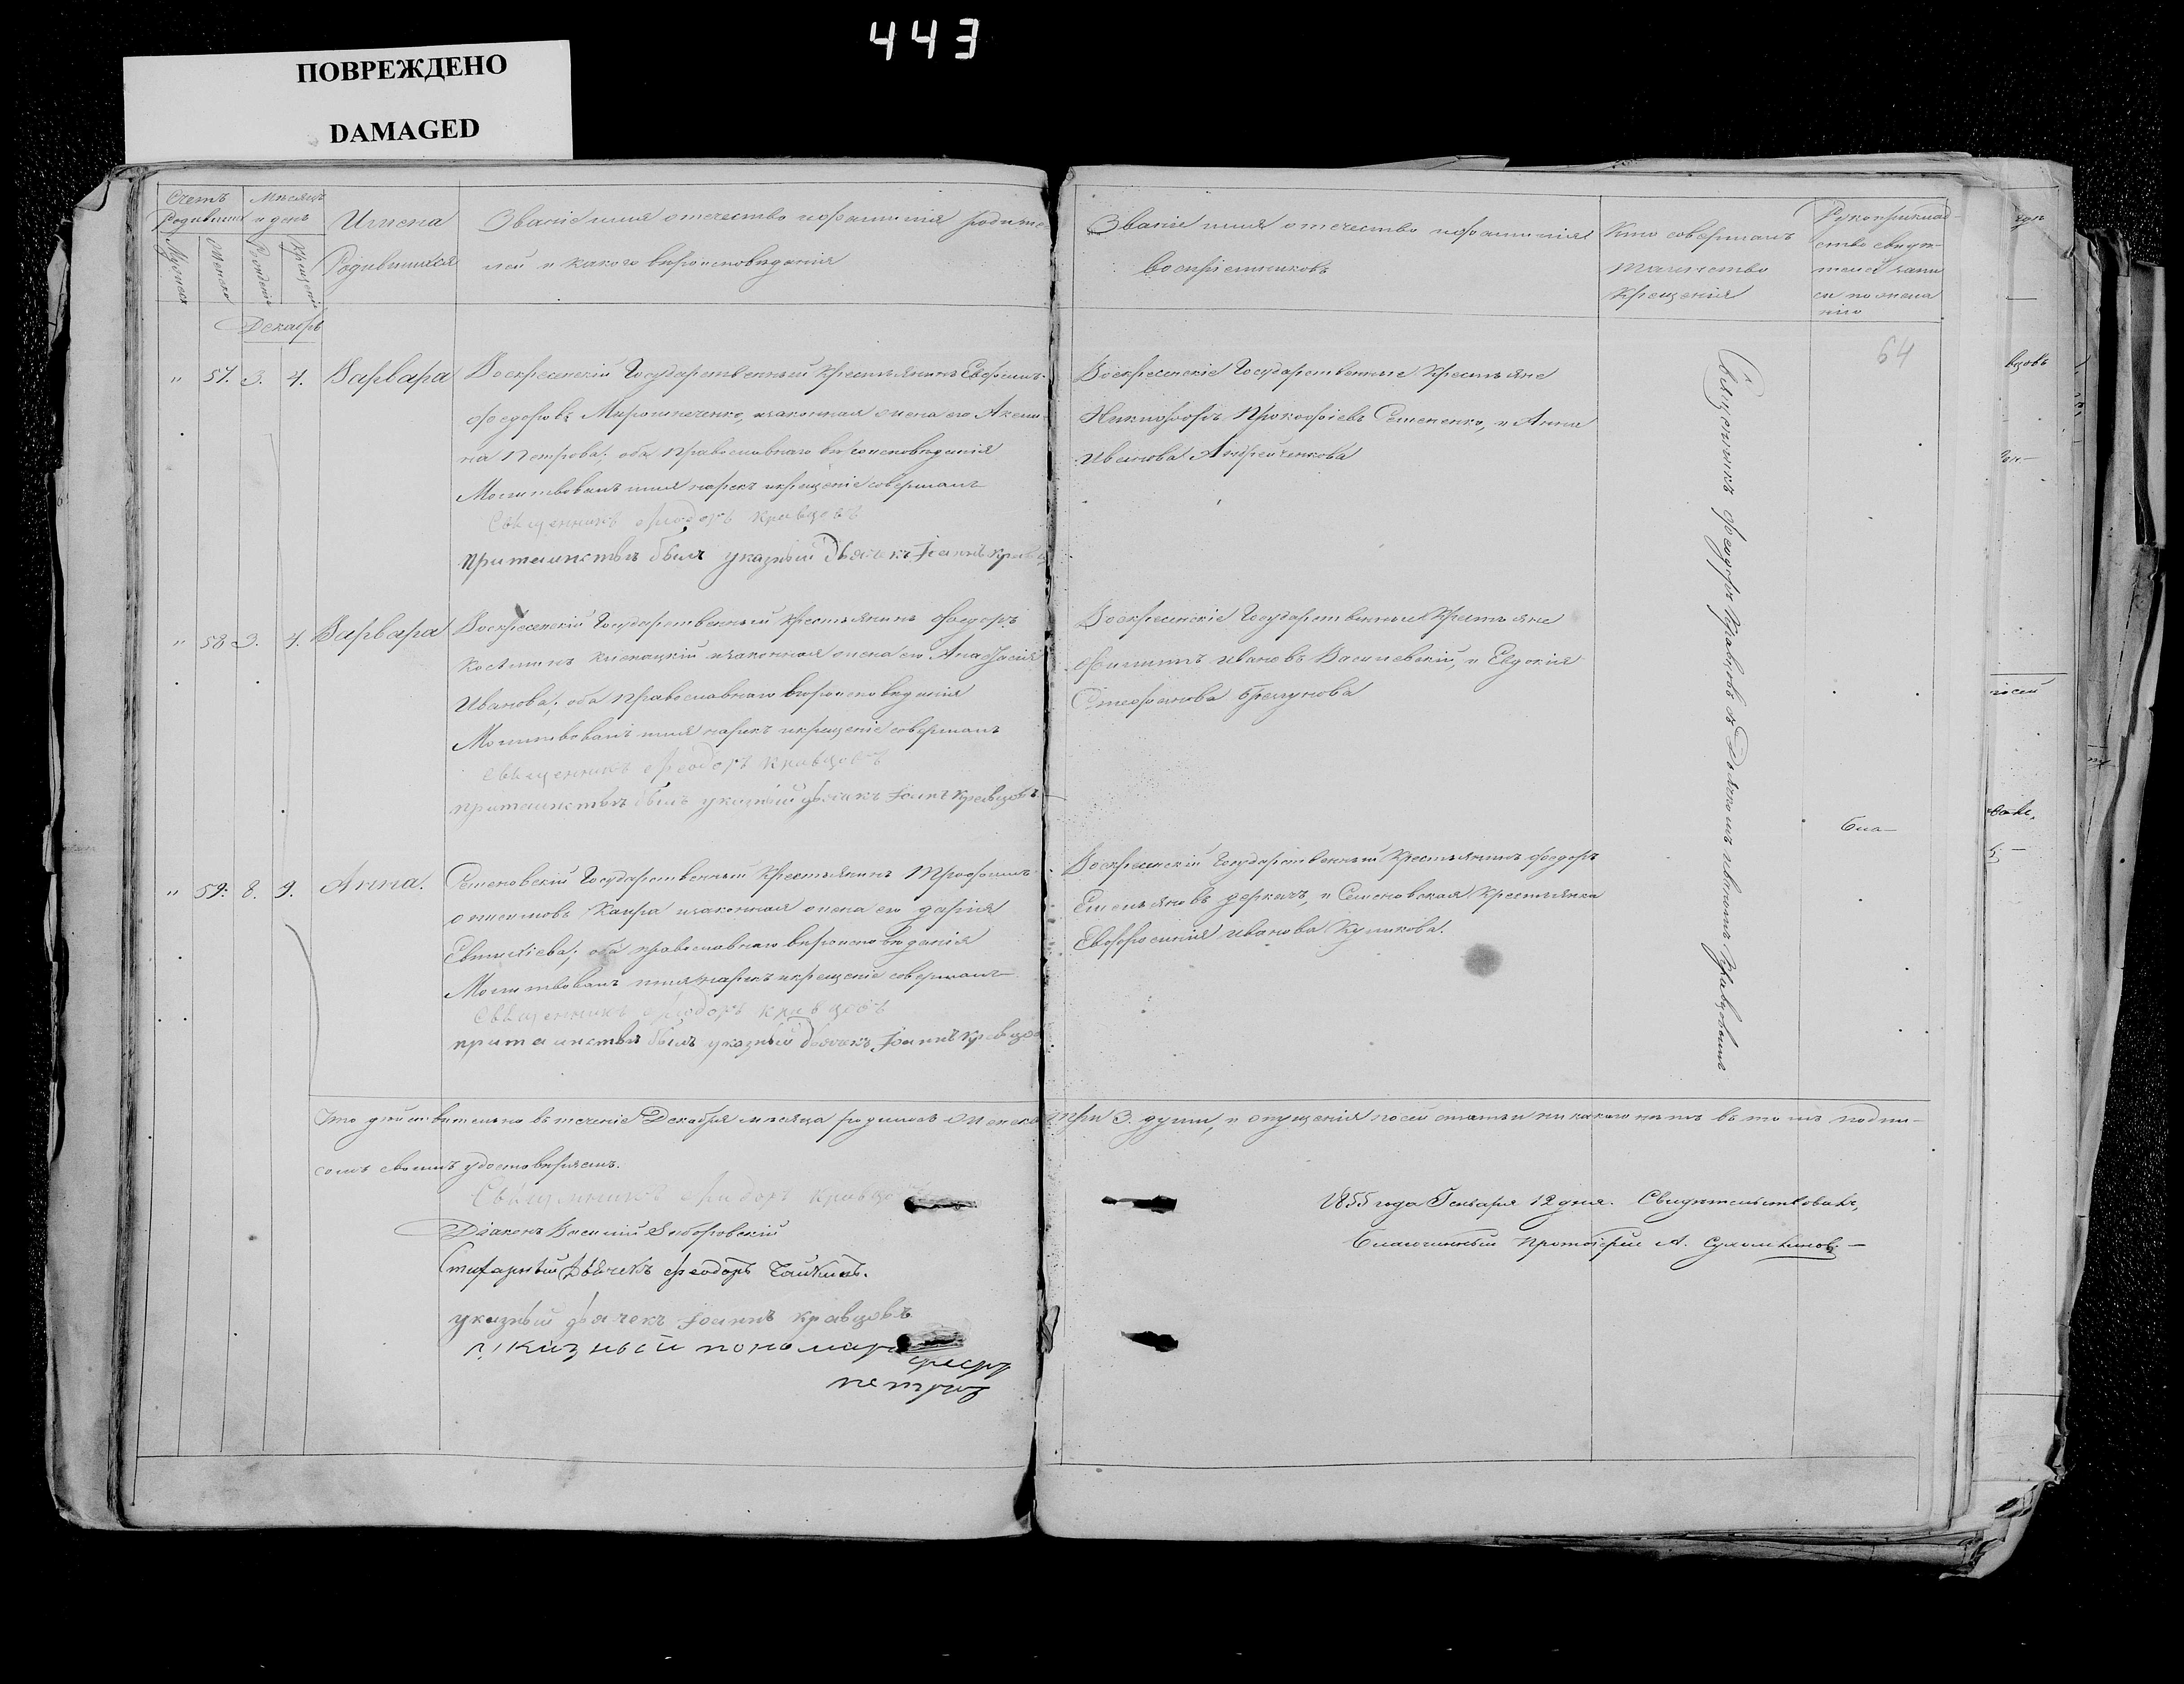 443
ПОВРЕЖДЕНО
DAMAGED
Счетъ
Родившихся
Мужеска
Женска
Месяцъ
и день
Рожденія
Крещенія
Имена
Родившихся
Званіе имя отечество и фамилія родите
лей и какого вероисповеданія
Званіе имя отечество и фамилія
Воспріемниковъ
Кто совершалъ
таинство
Крещенія
Рукоприклад-
ство свиде-
телей запи
си по жела
нію
Декабрь
64
" 57. 3. 4. Варвара
Воскресенскій Государственный Крестьянинъ Ефремъ
Федоровъ Мирошниченко, изаконная жена его Аксин
на Петрова; оба Православнаго вероисповеданія
Молитвовалъ имя нарекъ икрещеніе совершалъ
Священникъ Феодоръ Кравцовъ
притаинстве былъ указный Дьячекъ Іоаннъ Кравц
Воскресенскіе Государственные Крестьяне
Никифоръ Прокофіевъ Семененко, и Анна
Иванова Андрейченкова
Священникъ Феодоръ Кравцовъ съ Дьячкомъ Иваномъ Кравцовымъ
" 58 3. 4. Варвара
Воскресенскій Государственный Крестьянинъ Федоръ
Косминъ изаконная жена его Анастасія
Иванова; оба Православнаго вероисповеданія
Молитвовалъ имя нарекъ икрещеніе совершалъ
Священникъ Феодоръ Кравцовъ
притаинстве былъ указный дьячекъ Іоаннъ Кравцовъ
Воскресенскіе Государственные Крестьяне
Филиппъ Ивановъ Василевскій, и Евдокія
Стефанова
Бла-
" 59. 8. 9. Анна.
Семеновскій Государственный Крестьянинъ Трофимъ
Онисимовъ Каира изаконная жена его Дарія
Евтихіева; оба православнаго вероисповеданія
Молитвовалъ имя нарекъ икрещеніе совершалъ
Священникъ Феодоръ Кравцовъ
притаинстве былъ указный Дьячекъ Іоаннъ Кравцов
Воскресенскій Государственный Крестьянинъ Федоръ
Емельяновъ Деркачъ, и Семеновская Крестьянка
Евфросинія Иванова Куликова.
Что действительно въ теченіе Декабря месяца родилось Женска три 3. души, и опущенія посей статьи никакого нетъ въ томъ подпи-
сомъ своимъ удостоверяемъ.
Священникъ Феодоръ Кравцовъ
Діаконъ Василій
Стихарный Дьячекъ Феодоръ Чайкинъ.
указный дьячекъ Іоаннъ Кравцовъ
указный пономарь
Петров
1855 года Генваря 12 дня. Свидетельствовалъ,
Благочинный Протоіерей А. Сухомлиновъ